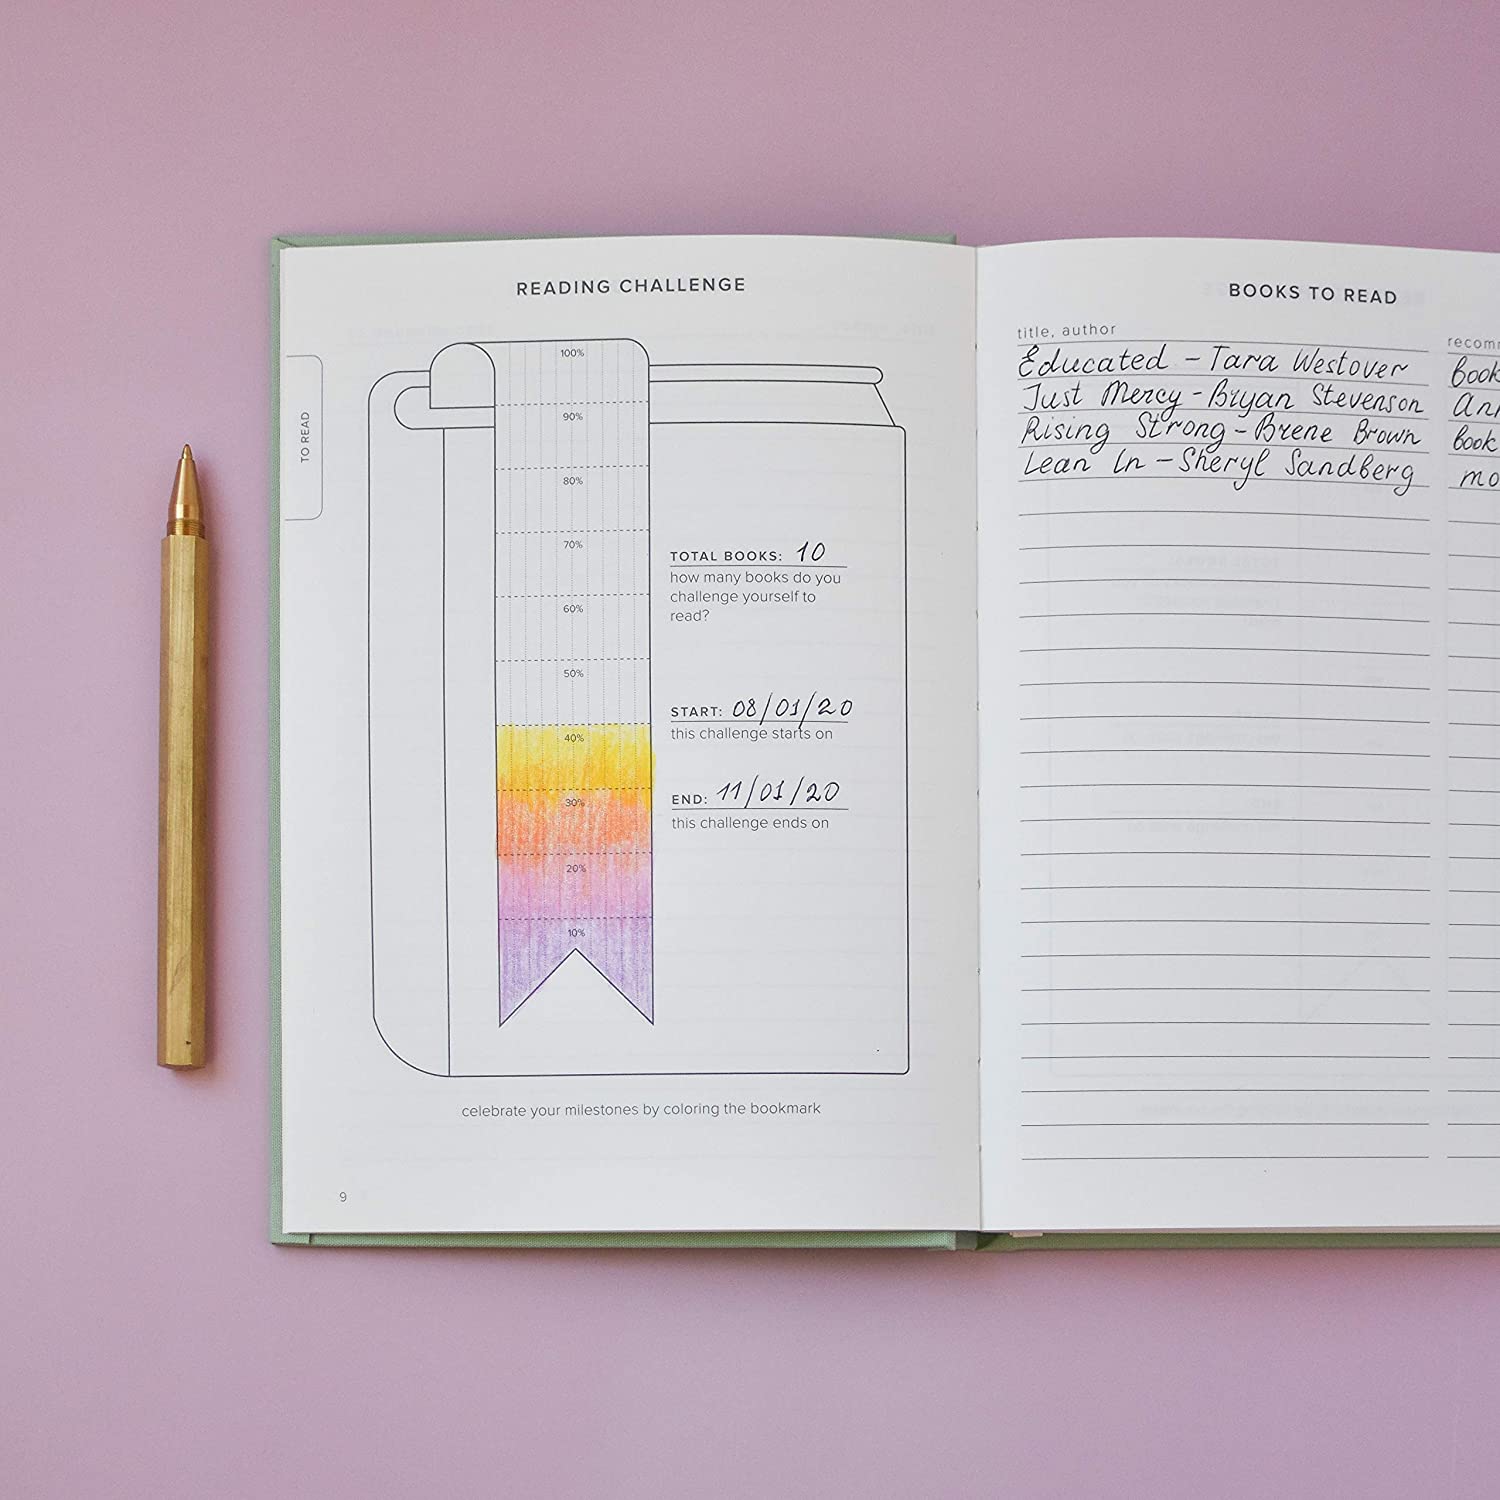 READING CHALLENGE
TO READ
100%
90%
80%
70%
60%
50%
40%
30%
20%
10%
TOTAL BOOKS: 10
how many books do you
challenge yourself to
read?
START: 08/01/20
this challenge starts on
END: 11/01/20
this challenge ends on
celebrate your milestones by coloring the bookmark
9
BOOKS TO READ
title, author
Educated - Tara Westover
book
Just Mercy - Bryan Stevenson
Rising Strong - Brene Brown
book
Lean In - Sheryl Sandberg